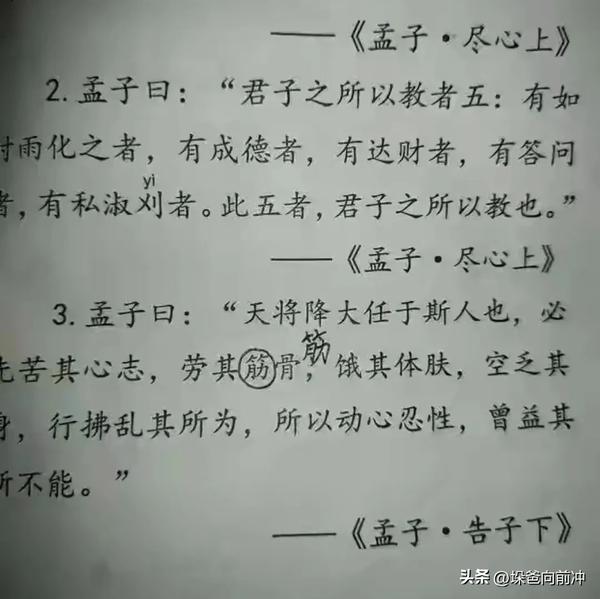 ——《孟子·尽心上》
2. 孟子曰：“君子之所以教者五：有如
时雨化之者，有成德者，有达财者，有答问
yì
者，有私淑刈者。此五者，君子之所以教也。”
——《孟子·尽心上》
3. 孟子曰：“天将降大任于斯人也，必
筋
先苦其心志，劳其筋骨，饿其体肤，空乏其
身，行拂乱其所为，所以动心忍性，曾益其
所不能。”
——《孟子·告子下》
头条 @垛爸向前冲